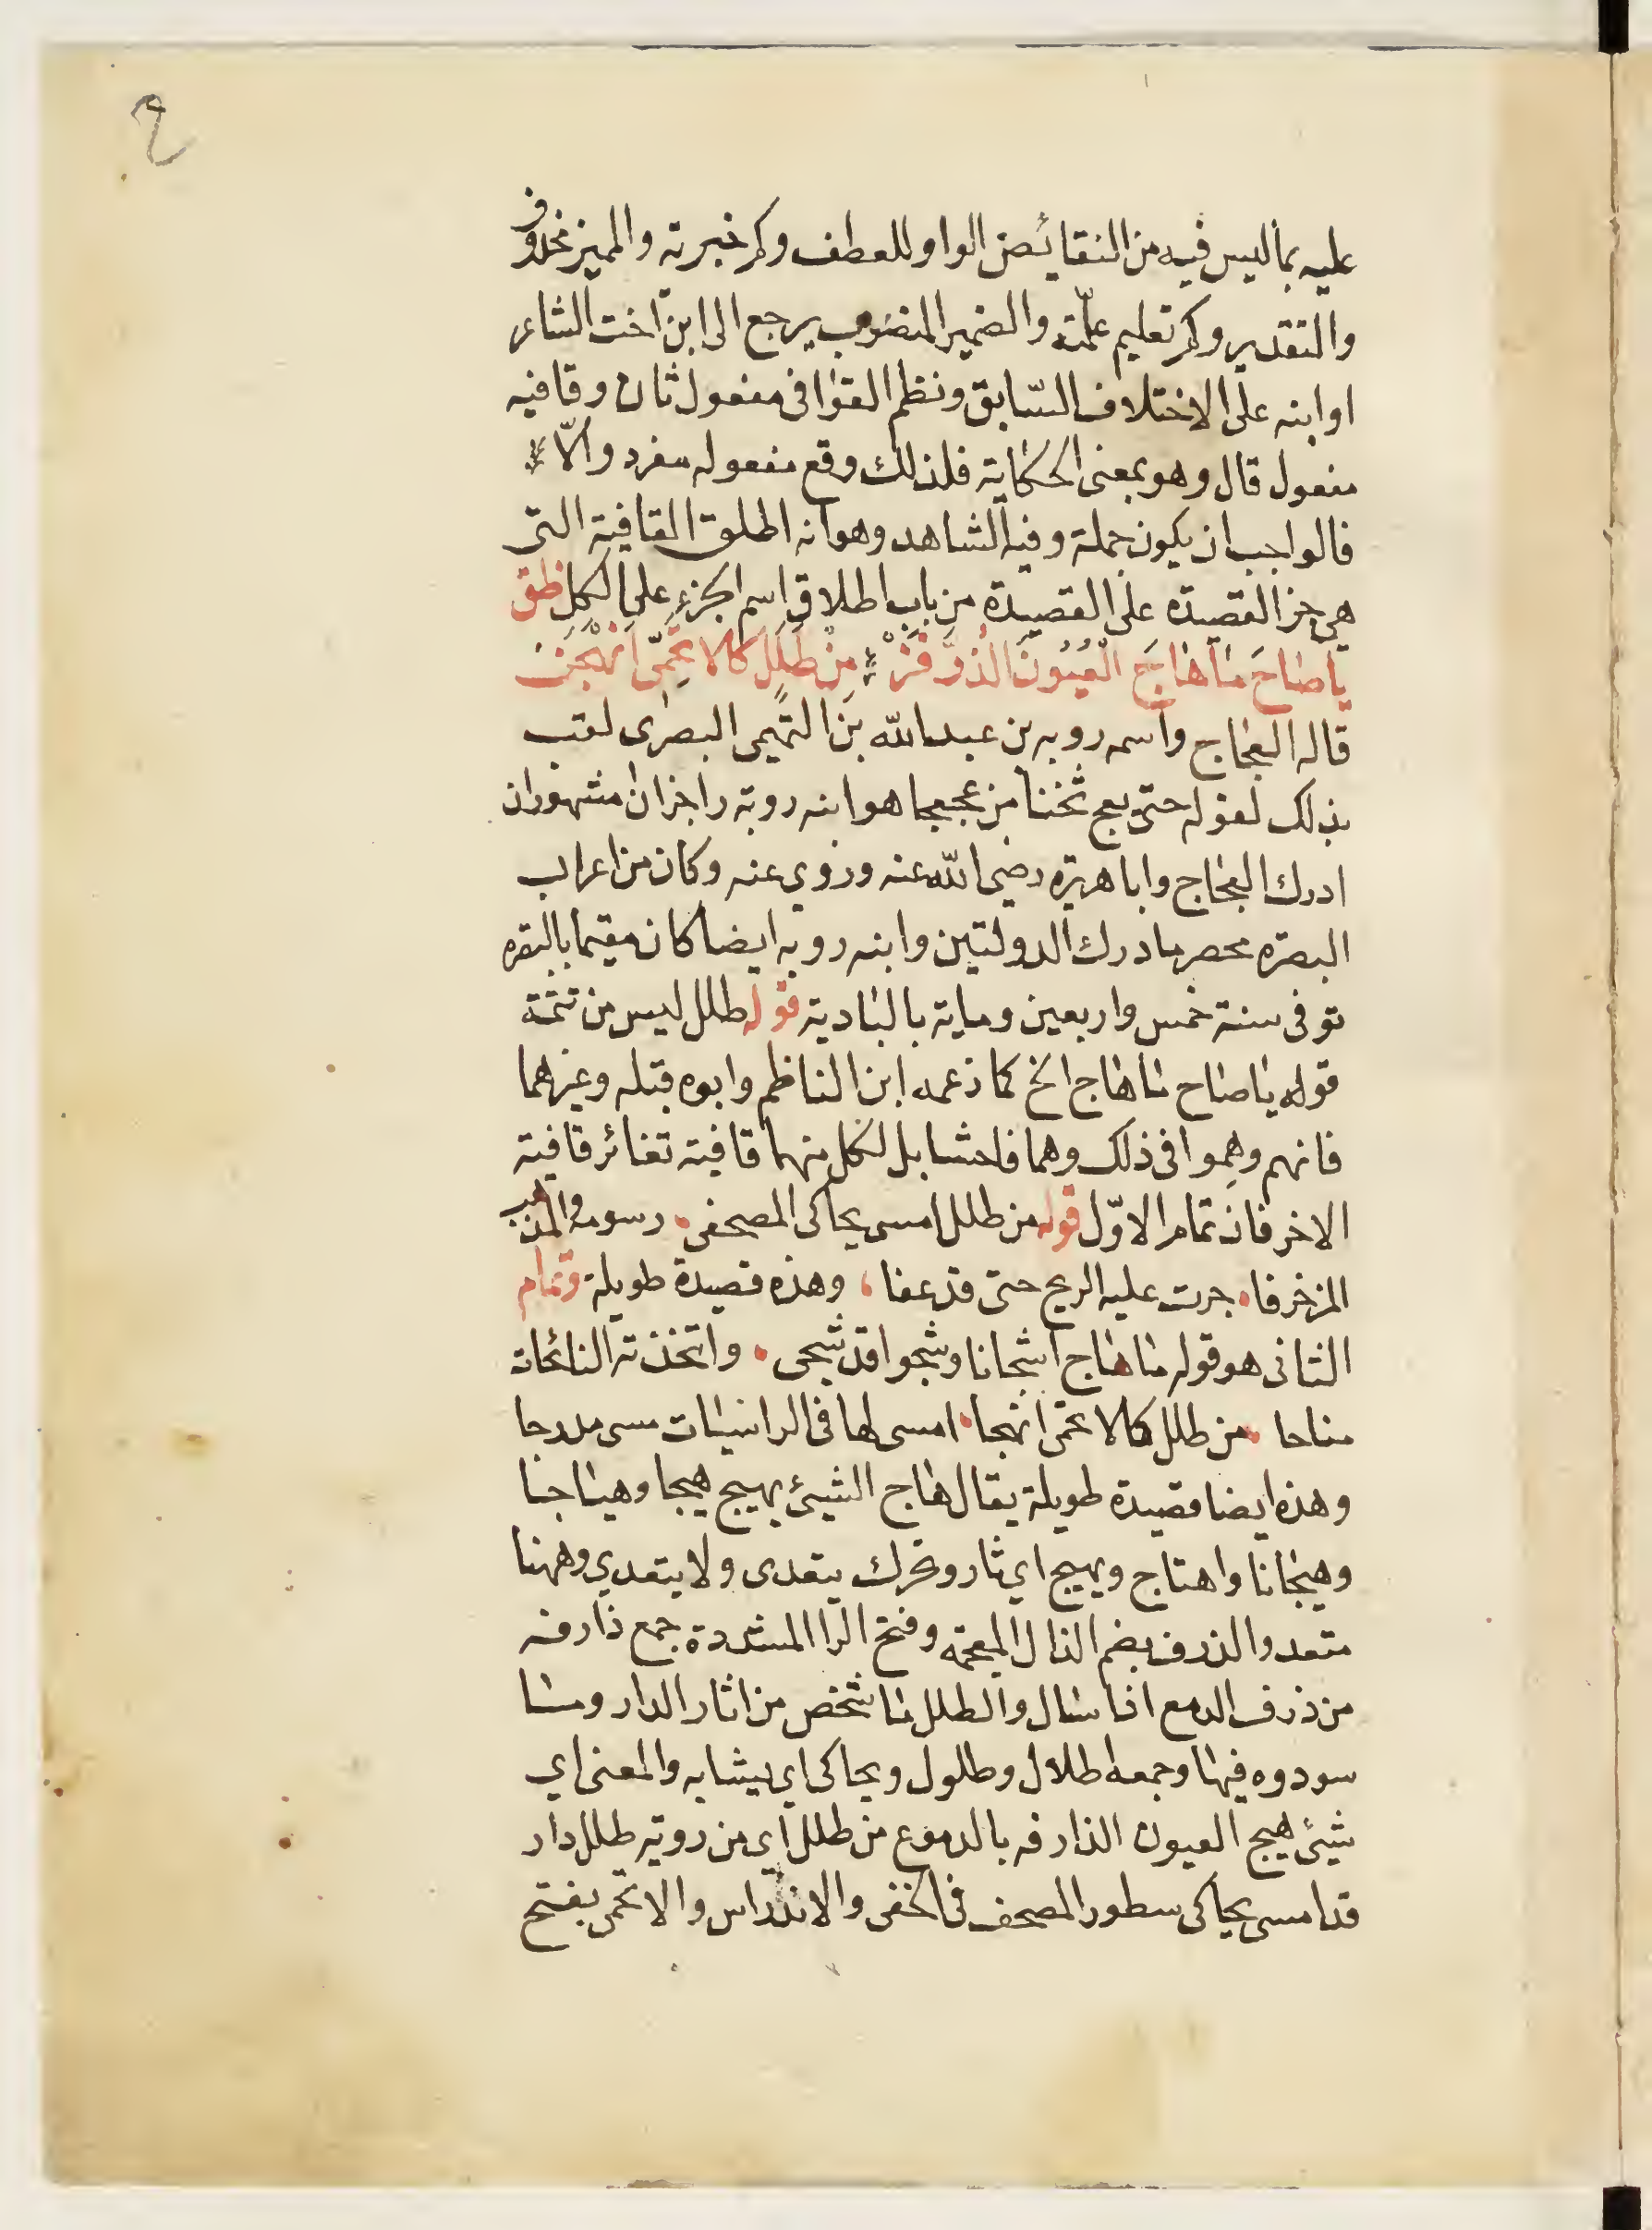 ٩
عليه بما ليس فيه من النقائص الواو للعطف وكم خبرية والمميز محذوف
والتقدير وكم تعليم علمته والضمير المنصوب يرجع الى ابن اخت الشاعر
او ابنه على الاختلاف السّابق ونظم القوافى مفعول ثان وقافيه
مفعول قال وهو بمعنى الحكاية فلذلك وقع مفعوله مفرد والّا
فالواجب ان يكون جملة وفيه الشاهد وهو انه اطلق القافية التى
هي جز القصيدة على القصيدة من باب اطلاق اسم الجزء على الكل ظق
يا صَاحَ مَا هَاجَ الْعُيُونَ الذُّرَّفَنْ مِنْ طَلَلٍ كَالاتحَمِىّ انْهَجَنْ
قاله العجاج واسمه روبه بن عبد الله بن التميمى البصرى لقب
بذلك لقوله حتى يعج ثخنا من عجعجا هو ابنه روبة راجزان مشهوران
ادرك العجاج وابا هريرة رضي الله عنه وروي عنه وكان من اعراب
البصرة مخضرما درك الدولتين وابنه روبه ايضا كان مقيما بالبصره
توفى سنة خمس واربعين وماية بالبادية قوله طلل ليس من تتمة
قوله يا صاح ما هاج الخ كما زعمه ابن الناظم وابوه قبله وغيرهما
فانهم وهموا فى ذلك وهما فاحشا بل لكل منهما قافية تغائر قافية
الاخر فان تمام الاوّل قوله من طلل امسى يحاكى المصحفى رسومه والمذهب
المزخرفا جرت عليه الريح حتى قد عفا وهذه قصيدة طويلة وتمام
الثانى هو قوله ما هاج اشجانا وشجوا قد شجى واتخذته النائحات
مناحا من طلل كالاتحمى انهجا امسى لها فى الرانيات مسى مدرجا
وهذه ايضا قصيدة طويلة يقال هاج الشيئ يهيج هيجا وهياجا
وهيجانا واهتاج ويهيج اي ثار وتحرك يتعدى ولا يتعدي وههنا
متعد والذرف بضم الذال المعجمه وفتح الرا المشددة جمع ذارفه
من ذرف الدمع اذا سال والطلل ما شخص من اثار الدار وما
سودوه فيها وجمعه اطلال وطلول ويحاكى اي يشابه والمعنى اي
شيئ هيج العيون الذارفه بالدموع من طلل اي من روية طلل دار
قد امسى يحاكى سطور المصحف فى الخفى والاندراس والاتحمى بفتح